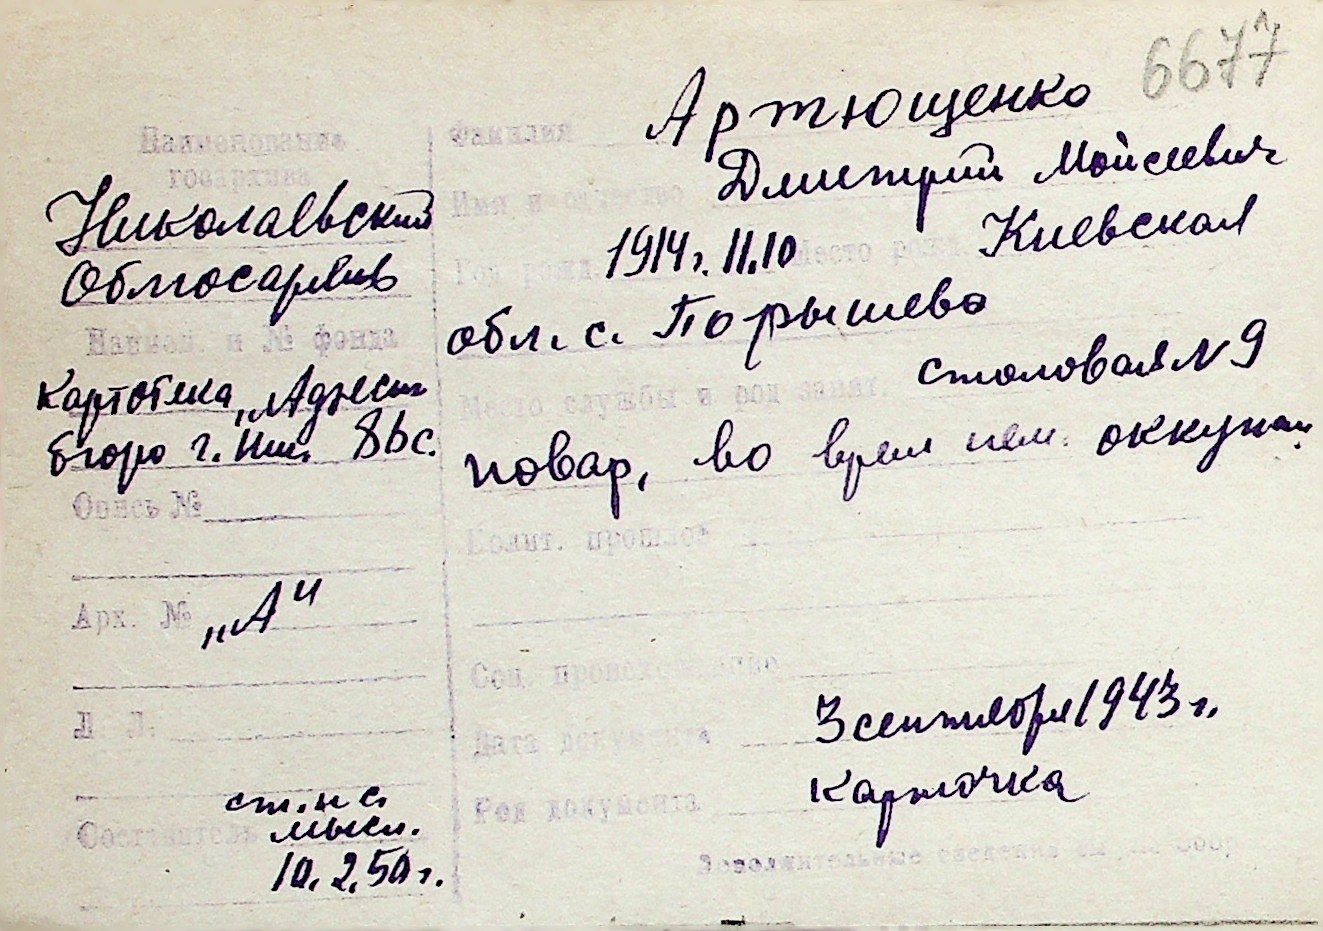 6677
Наименование
госархива
Николаевский
Облгосархив
Наимен. и № фонда
Картотека „Адресн
бюро г. Ник. 86с.
Опись №
Арх. № „А"
Л. Л.
Составитель ст. н с.
мысл.
10. 2. 50 г.
Фамилия Артющенко
Имя и отчество Дмитрий Мойсеевич
Год рожд. 1914 г. 11.10 Место рожд. Киевская
обл. с. Порышево
Место службы и род занят. столовая N 9
повар, во время нем. оккупац.
Полит. прошлое
Соц. происхождение
Дата документа 3 сентября 1943 г.
Род документа карточка
Дополнительные сведения на обор